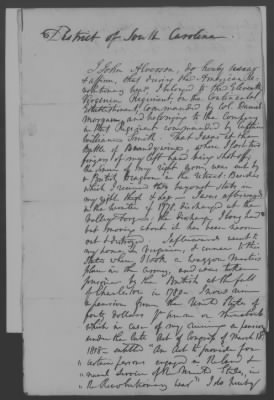 District of South Carolina
I John Moorson, do hereby swear
& affirm, that during the American Re-
volutionary War, I belonged to the Eleventh
Virginia Regiment, on the Continental
Establishment, Commanded by Col. Daniel
Morgan, and belonging to the Company
in that Regiment commanded by Captain
William Smith. That I was at the
Battle of Brandywine, where I lost the
fingers of my left hand being shot off,
the of my right arm, was cut by
a British Dragoon in the retreat. Besides
which I received two bayonet stabs in
my right thigh & leg — I was afterwards
in the winter of 1778 discharged at the
Valley Forge, the discharge I long had
but moving about it has been worn
out & destroyed. Afterwards I went to
my home in Virginia, & came to this
State where I took a Waggon Masters
place in the army, and was taken
prisoner by the British at the fall
of Charleston in 1780. I now
a pension from the United States of
forty dollars annum or thereabouts
which in case of my receiving a pension
under the late Act of Congress of March 18th
1818 — entitled "An Act to provide for
certain persons engaged in the land &
naval service of the United States, in
the Revolutionary War" I do hereby